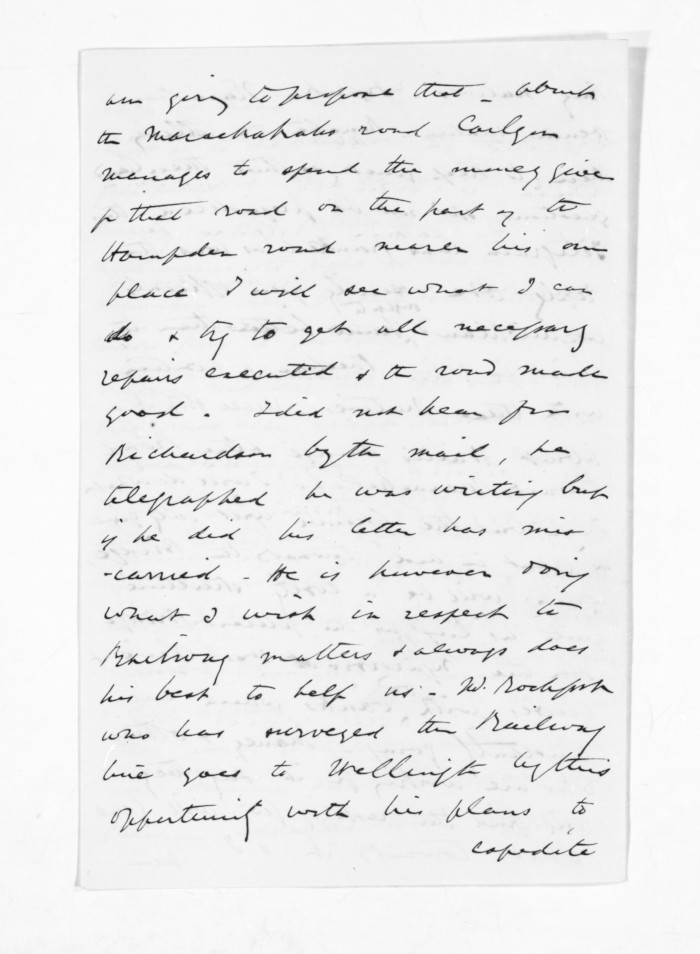 am going to propose that - About
the Maraekakaho road Carlyon
manages to spend the money give
for that road on the part of the
Hampden road nearer his own
place I will see what I can
do & try to get all necessary
repairs executed & the road made
good. I did not hear from
Richardson by the mail, he
telegraphed he was writing but
if he did his letter has mis
-carried - He is however doing
what I wish in respect to
Railway matters & always does
his best to help us - Mr. Rochfort
who has surveyed the Railway
line goes to Wellington by this
opportunity with his plans to
expedite